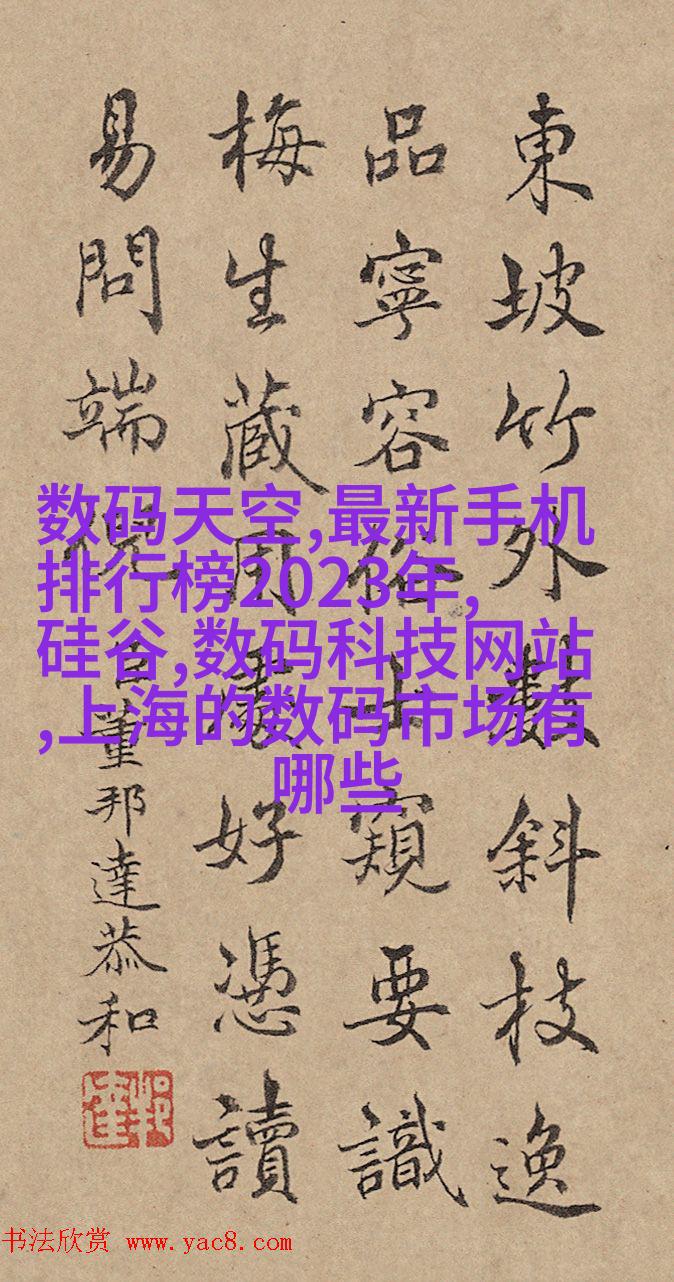 東坡竹外數斜枝逸
品寧容俗士窺要識
梅生藏用處好憑讀
易問端倪
臣董邦達恭和
数码天空,最新手机
排行榜2023年,
硅谷,数码科技网站
,上海的数码市场有
哪些
书法欣赏 www.yac8.com